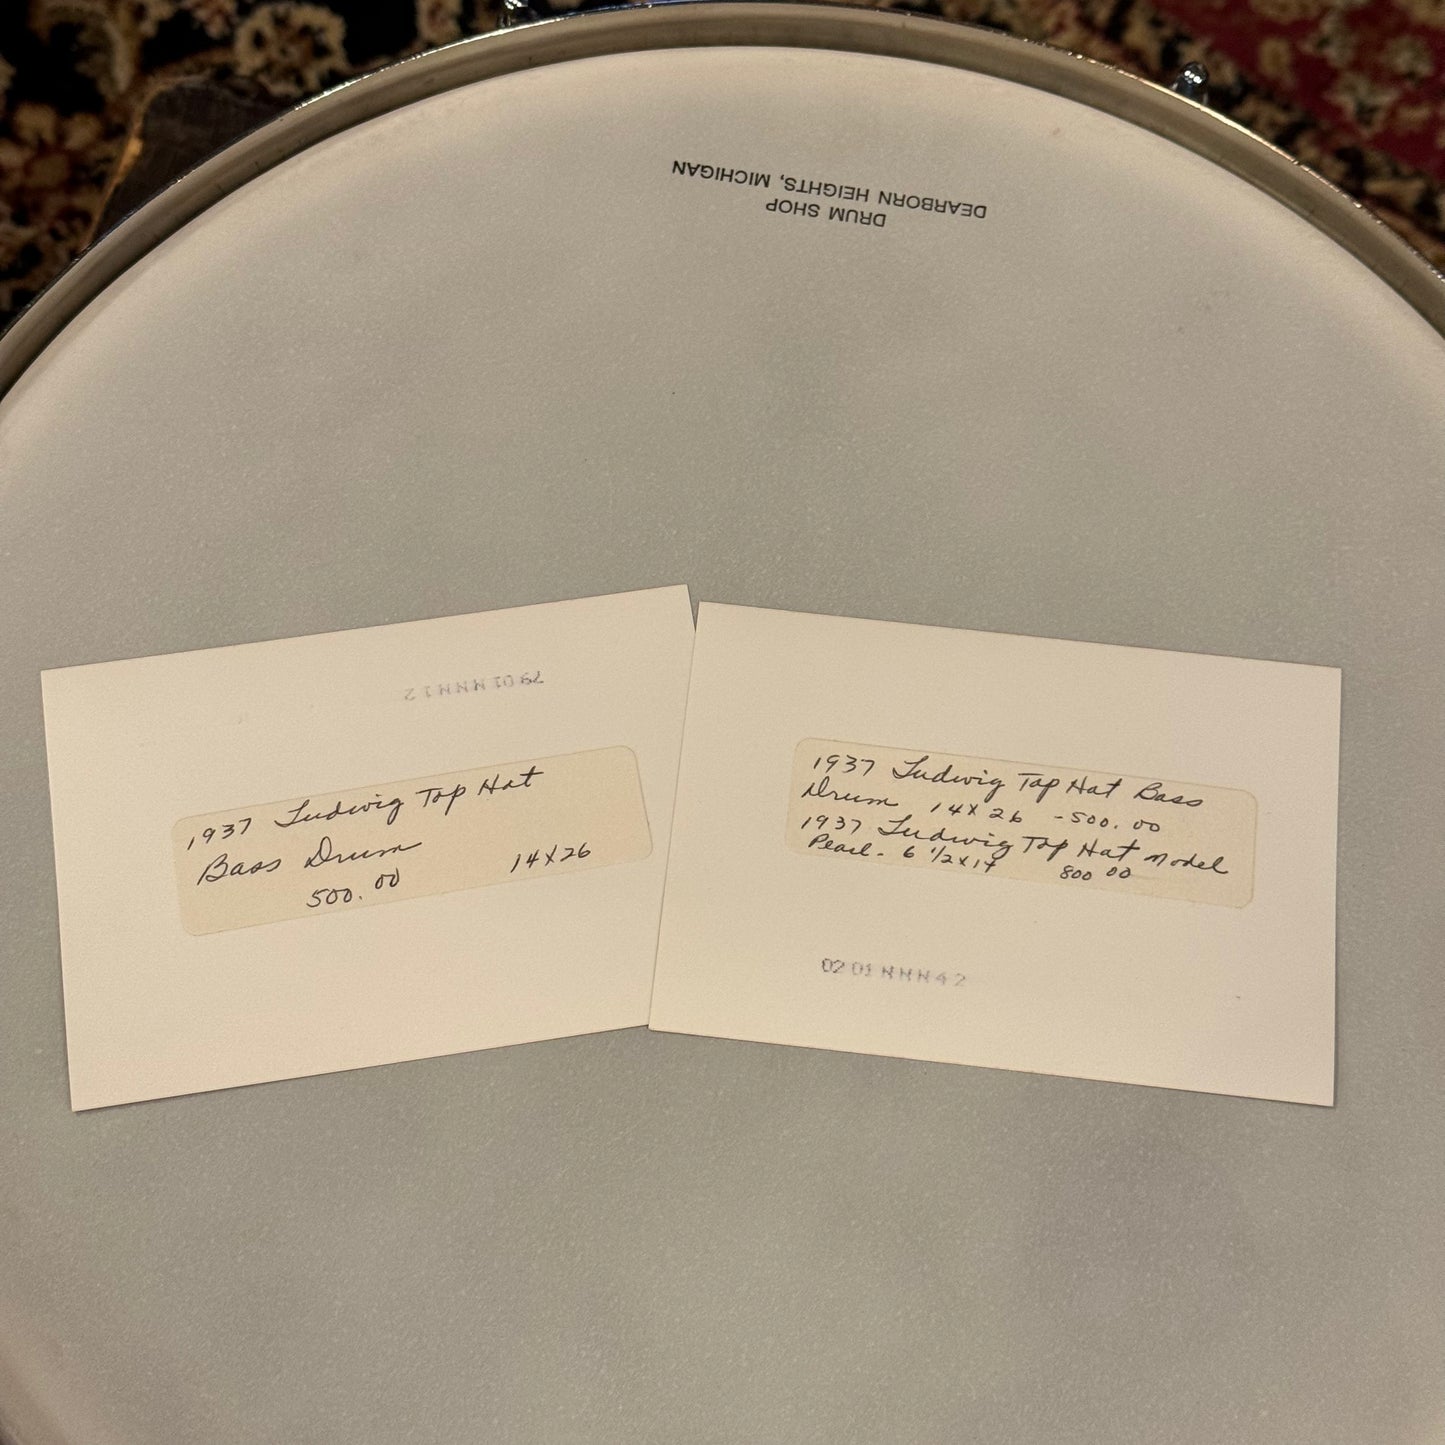 DRUM SHOP
DEARBORN HEIGHTS, MICHIGAN
7901NNNN12
1937 Ludwig Top Hat
Bass Drum 14X26
500.00
1937 Ludwig Top Hat Bass
Drum 14X26 -500.00
1937 Ludwig Top Hat model
Pearl- 6 1/2x14 800 00
0201NNNN42